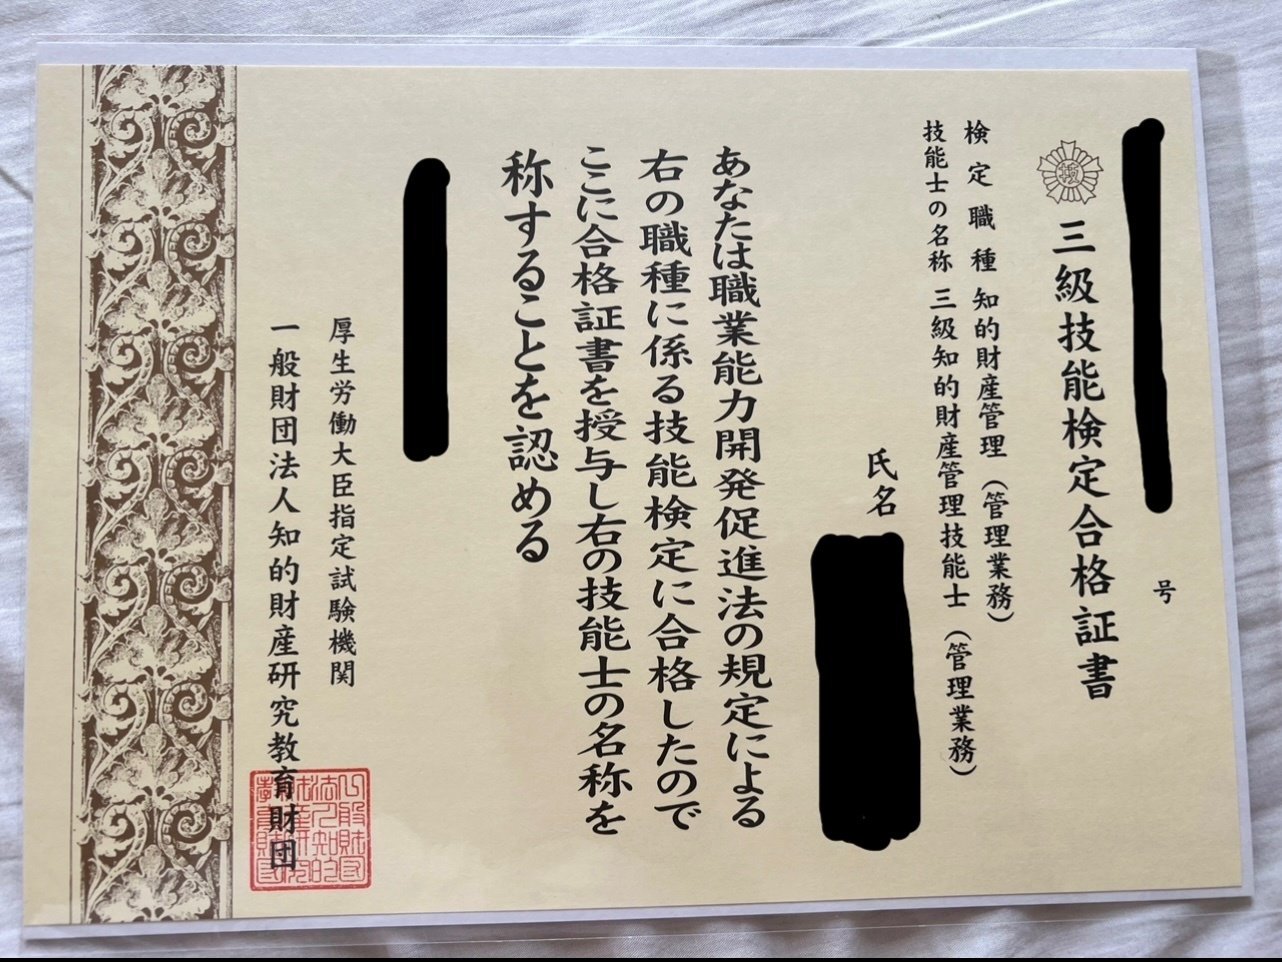 号
三級技能検定合格証書
検定職種 知的財産管理（管理業務）
技能士の名称 三級知的財産管理技能士（管理業務）
氏名
あなたは職業能力開発促進法の規定による
右の職種に係る技能検定に合格したので
ここに合格証書を授与し右の技能士の名称を
称することを認める
厚生労働大臣指定試験機関
一般財団法人知的財産研究教育財団